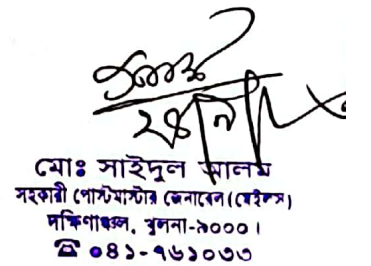 মোঃ সাইদুল আলম
সহকারী পোস্টমাস্টার জেনারেল (মেইলস)
দক্ষিণাঞ্চল, খুলনা-৯০০০।
☎ ০৪১-৭৬১০৩৩